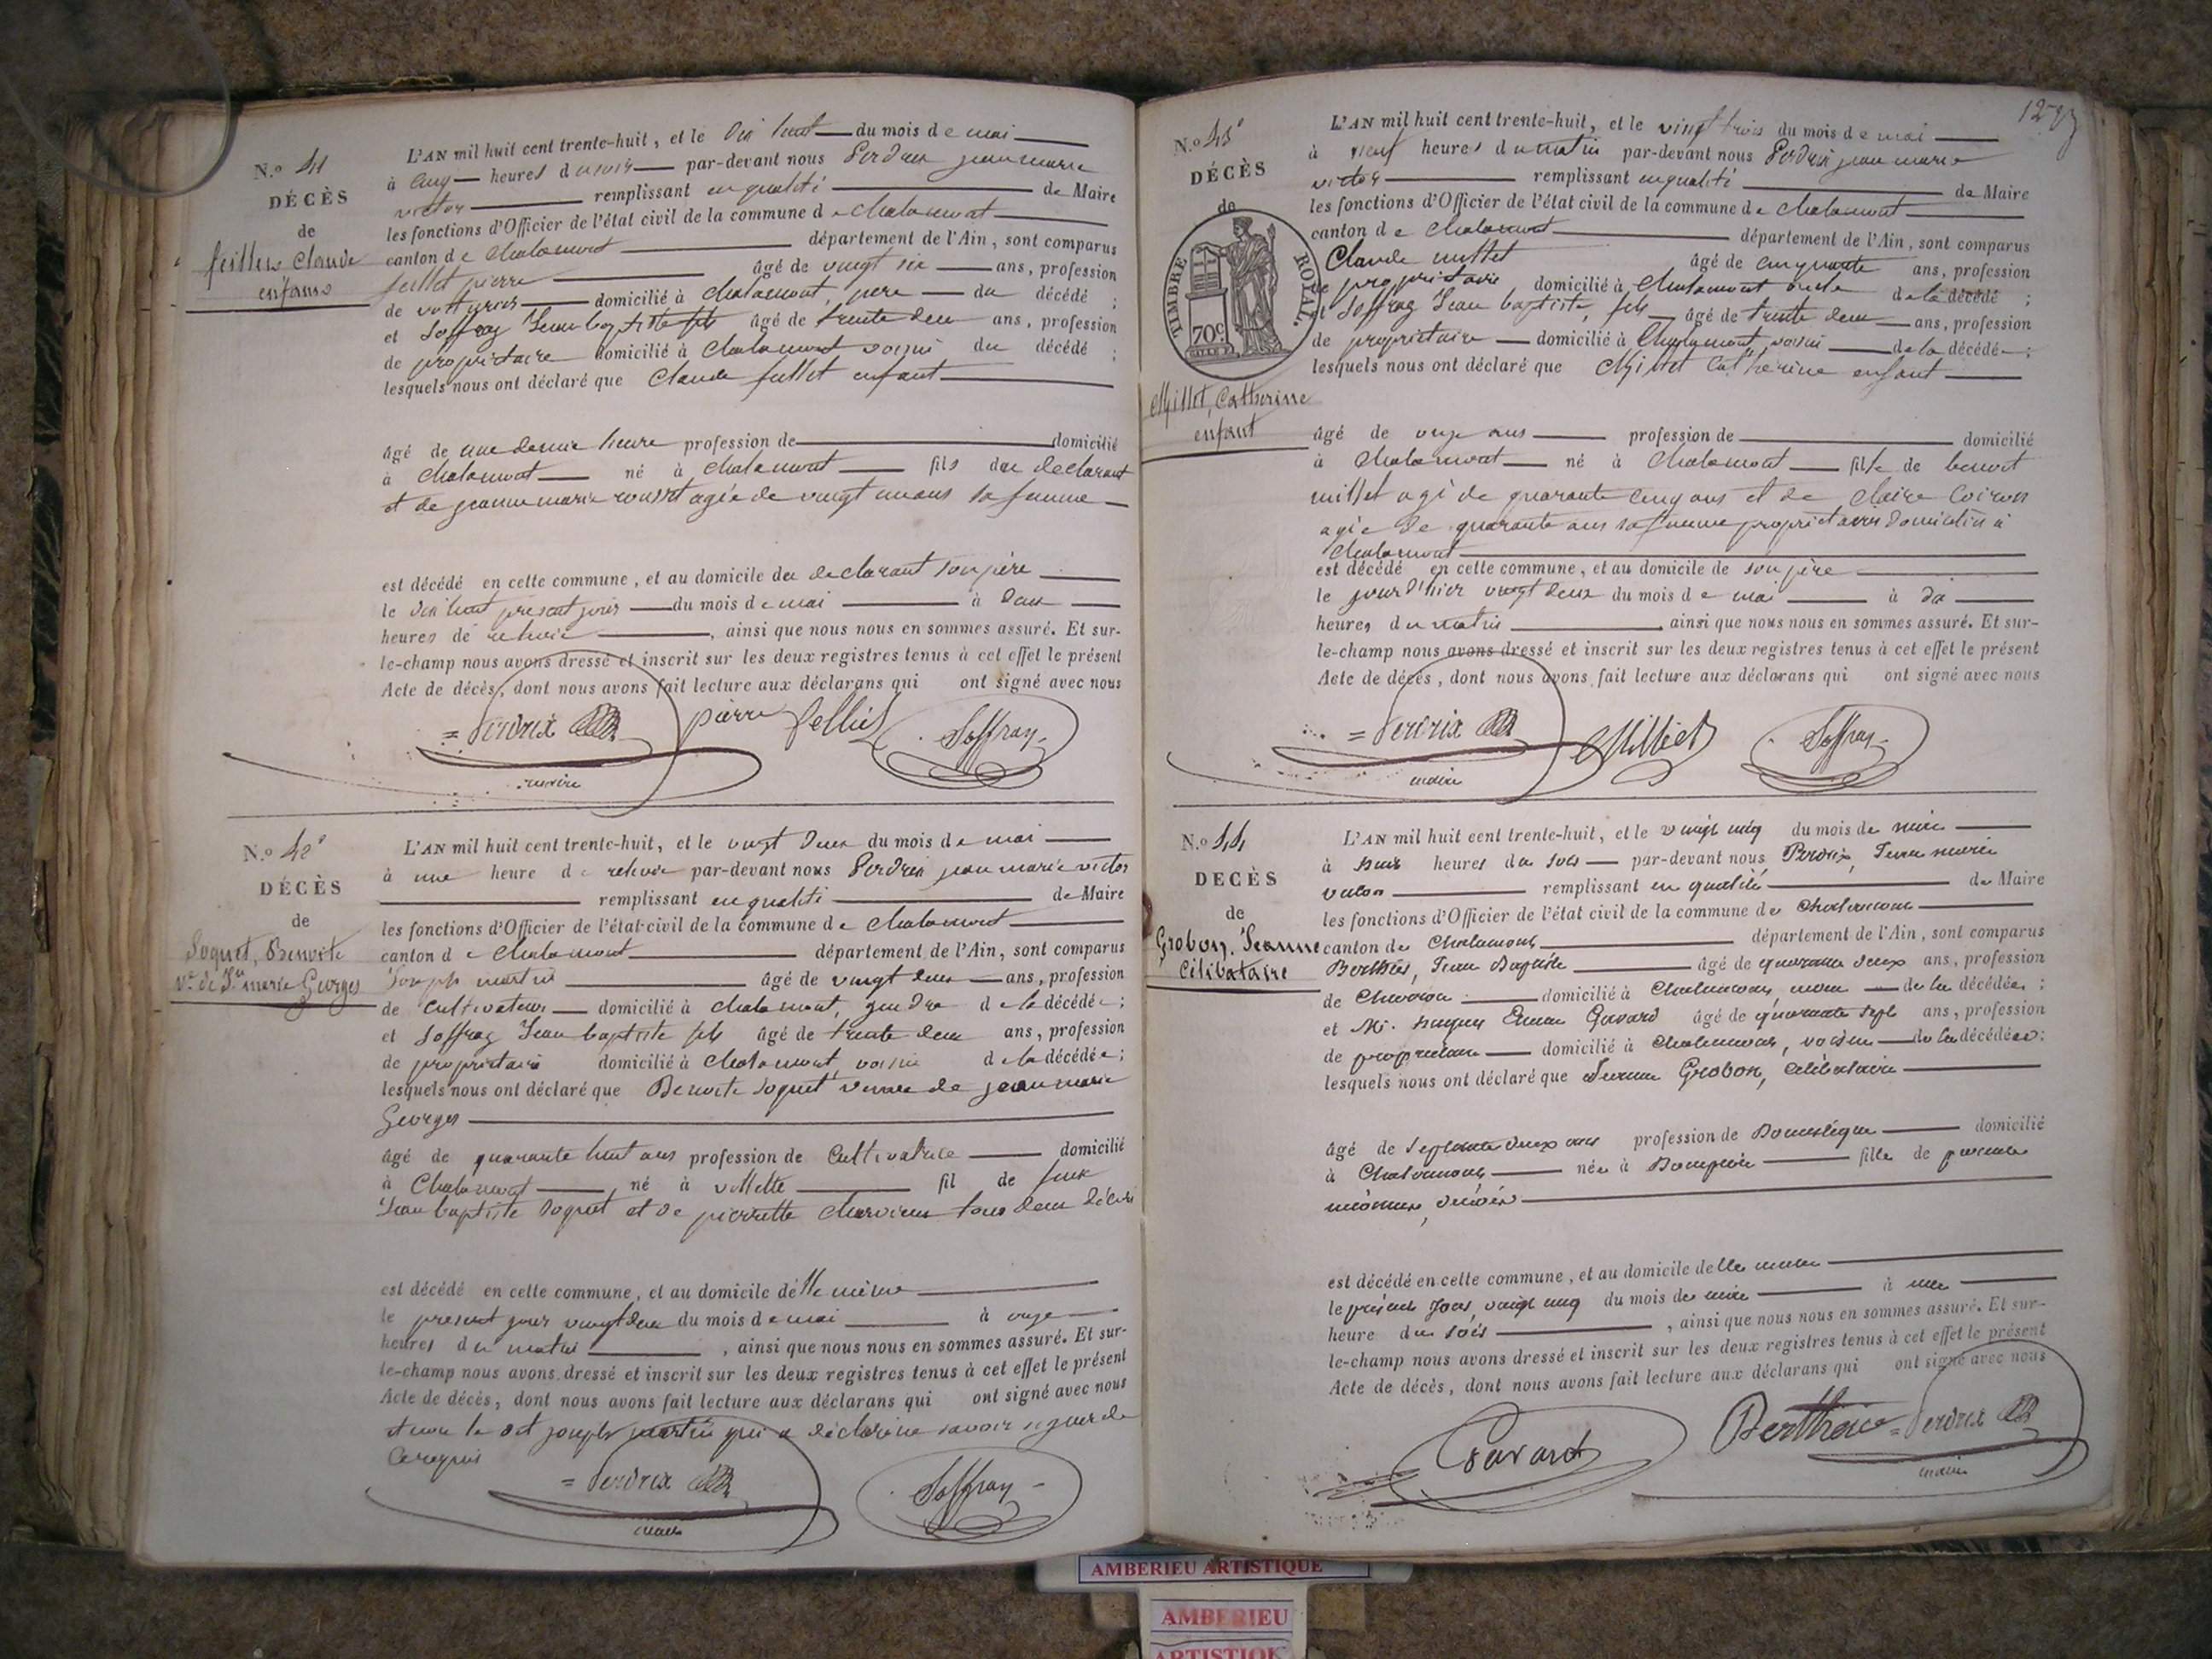 N.o 41
DÉCÈS
de
feillet Claude
enfant
L'AN mil huit cent trente-huit, et le dix huit du mois de mai
à cinq heures du soir par-devant nous Perdrix jean marie
victor remplissant en qualité de Maire
les fonctions d'Officier de l'état civil de la commune de chalamont
canton de chalamont département de l'Ain, sont comparus
feillet pierre âgé de vingt six ans, profession
de voiturier domicilié à chalamont, père du décédé ;
et Soffray Jean baptiste fils âgé de trente deux ans, profession
de propriétaire domicilié à chalamont voisin du décédé ;
lesquels nous ont déclaré que Claude feillet enfant
âgé de une demie heure profession de domicilié
à chalamont né à chalamont fils du declarant
et de jeanne marie agée de vingt un ans sa femme
est décédé en cette commune, et au domicile du declarant son père
le dix huit present jour du mois de mai à deux
heures de relevée, ainsi que nous nous en sommes assuré. Et sur-
le-champ nous avons dressé et inscrit sur les deux registres tenus à cet effet le présent
Acte de décès, dont nous avons fait lecture aux déclarans qui ont signé avec nous
Perdrix pierre felliet Soffray
maire
N.o 42
DÉCÈS
de
Soquet, Benoite
v.e de J.n marie Georges
L'AN mil huit cent trente-huit, et le vingt deux du mois de mai
à une heure de relevée par-devant nous Perdrix jean marie victor
remplissant en qualité de Maire
les fonctions d'Officier de l'état civil de la commune de chalamont
canton de chalamont département de l'Ain, sont comparus
Joseph martin âgé de vingt deux ans, profession
de cultivateur domicilié à chalamont, gendre de la décédée ;
et Soffray Jean baptiste fils âgé de trente deux ans, profession
de propriétaire domicilié à chalamont voisin de la décédée ;
lesquels nous ont déclaré que Benoite Soquet veuve de jean marie
Georges
âgé de quarante huit ans profession de Cultivatrice domicilié
à Chalamont né à villette fil de feux
Jean baptiste Soquet et de pierrette tous deux décédés
est décédé en cette commune, et au domicile d'elle même
le present jour vingt deux du mois de mai à onze
heures du matin, ainsi que nous nous en sommes assuré. Et sur-
le-champ nous avons dressé et inscrit sur les deux registres tenus à cet effet le présent
Acte de décès, dont nous avons fait lecture aux déclarans qui ont signé avec nous
et non le dit joseph martin qui a déclaré ne savoir signer de
ce requis
Perdrix Soffray
maire
1293
N.o 43
DÉCÈS
de
TIMBRE ROYAL.
70c.
Millet, Catherine
enfant
L'AN mil huit cent trente-huit, et le vingt trois du mois de mai
à neuf heures du matin par-devant nous Perdrix jean marie
victor remplissant en qualité de Maire
les fonctions d'Officier de l'état civil de la commune de chalamont
canton de chalamont département de l'Ain, sont comparus
Claude millet âgé de cinquante ans, profession
de propriétaire domicilié à chalamont oncle de la décédé ;
et Soffray Jean baptiste, fils âgé de trente deux ans, profession
de propriétaire domicilié à Chalamont, voisin de la décédée ;
lesquels nous ont déclaré que Millet Catherine enfant
âgé de onze ans profession de domicilié
à chalamont né à chalamont fille de benoit
millet agé de quarante cinq ans et de Claire Coiron
agée de quarante ans sa femme propriétaires domiciliés à
chalamont
est décédé en cette commune, et au domicile de son père
le jour d'hier vingt deux du mois de mai à dix
heures du matin, ainsi que nous nous en sommes assuré. Et sur-
le-champ nous avons dressé et inscrit sur les deux registres tenus à cet effet le présent
Acte de décès, dont nous avons fait lecture aux déclarans qui ont signé avec nous
Perdrix Milliet Soffray
maire
N.o 44
DECÈS
de
Grobon, Jeanne
Célibataire
L'AN mil huit cent trente-huit, et le vingt cinq du mois de mai
à heures du soir par-devant nous Perdrix, Jean marie
victor remplissant en qualité de Maire
les fonctions d'Officier de l'état civil de la commune de Chalamont
canton de Chalamont département de l'Ain, sont comparus
Jean Baptiste âgé de quarante deux ans, profession
de domicilié à Chalamont, de la décédée ;
et M. Gavard âgé de quarante sept ans, profession
de propriétaire domicilié à Chalamont, voisin de la décédée ;
lesquels nous ont déclaré que Jeanne Grobon, Célibataire
âgé de septante deux ans profession de Domestique domicilié
à Chalamont née à Dompierre fille de parents
inconnus, décédés
est décédé en cette commune, et au domicile d'elle même
le présent jour, vingt cinq du mois de mai à une
heure du soir, ainsi que nous nous en sommes assuré. Et sur-
le-champ nous avons dressé et inscrit sur les deux registres tenus à cet effet le présent
Acte de décès, dont nous avons fait lecture aux déclarans qui ont signé avec nous
Gavard Perdrix
maire
AMBERIEU ARTISTIQUE
AMBERIEU
ARTISTIQUE